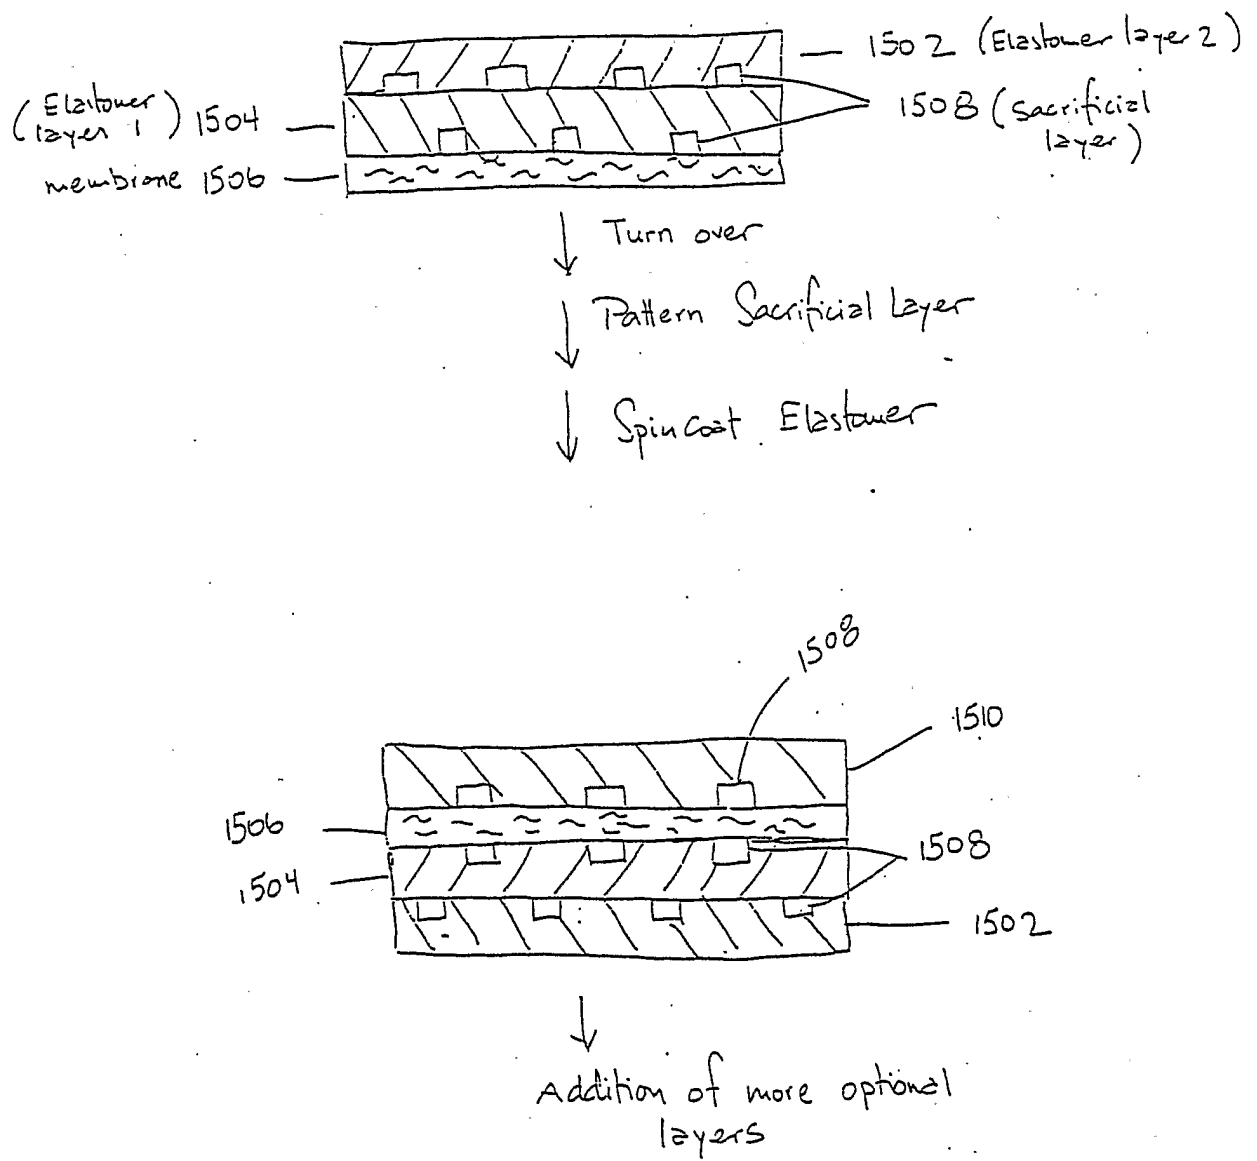 1502 (Elastomer layer 2)
(Elastomer
layer 1) 1504
1508 (Sacrificial
layer)
membrane 1506
Turn over
Pattern Sacrificial Layer
Spin coat Elastomer
1508
1510
1506
1508
1504
1502
Addition of more optional
layers